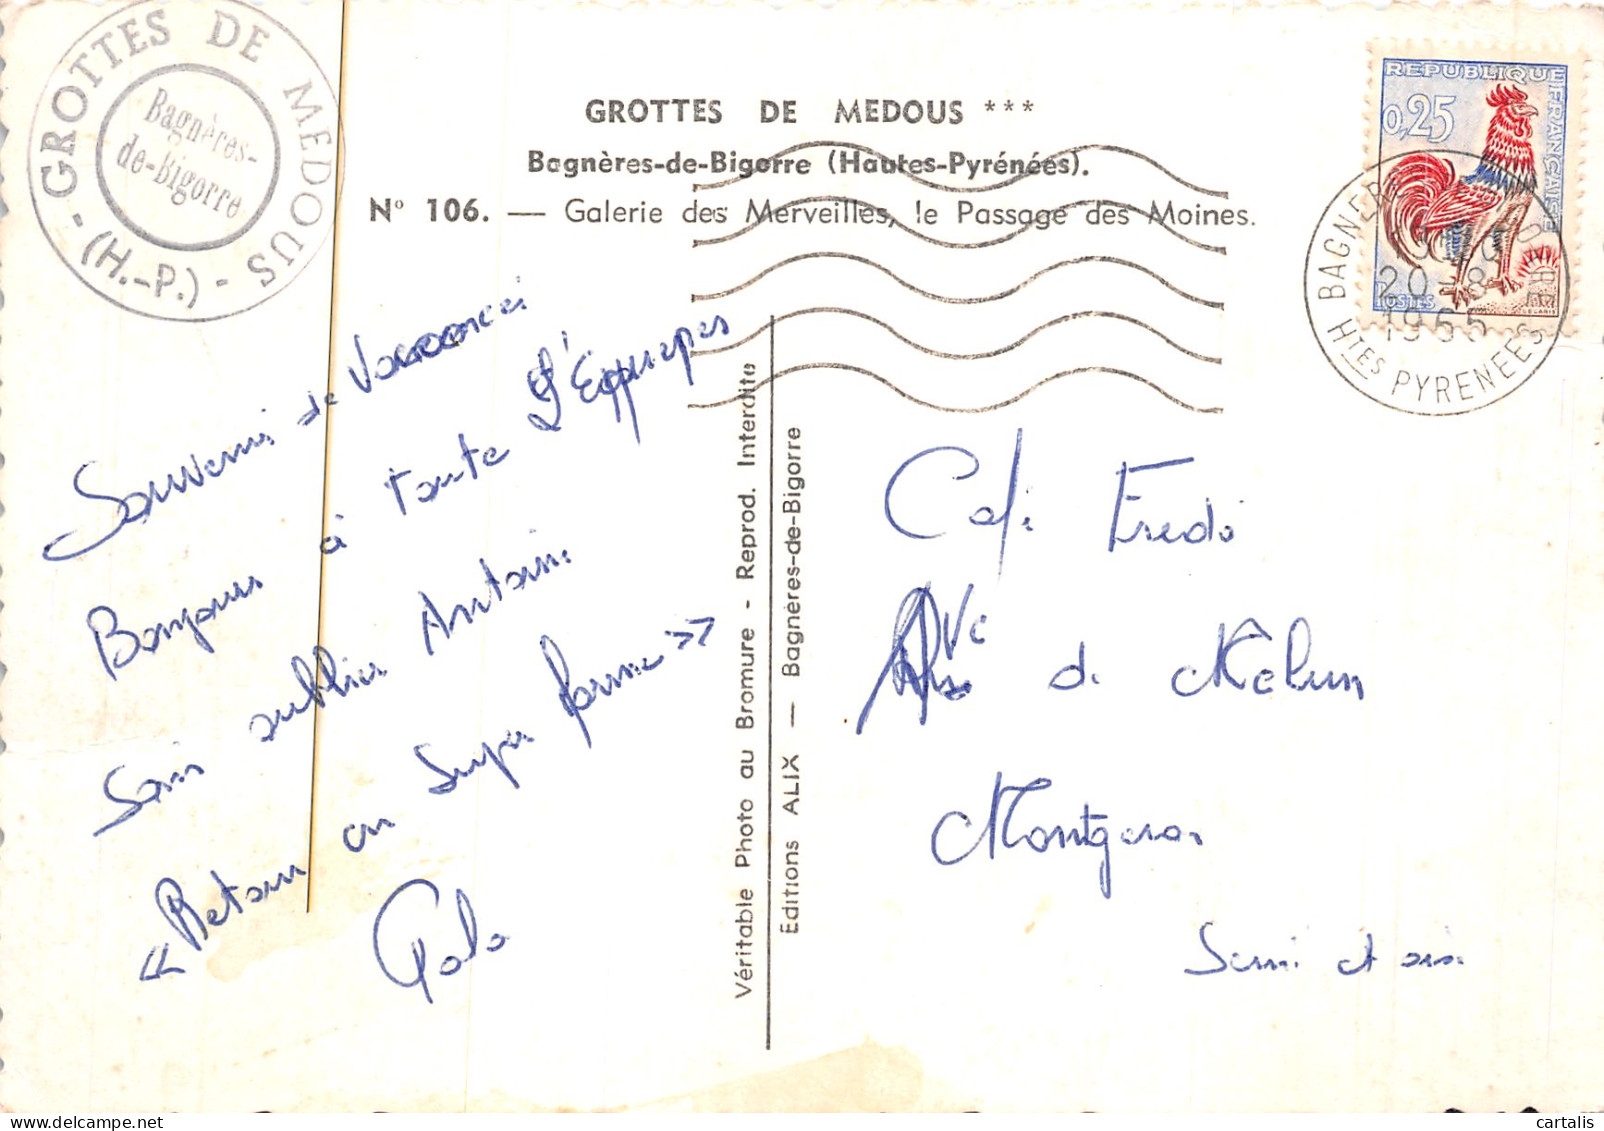 GROTTES DE MEDOUS - (H.-P.) -
Bagnères-
de-Bigorre
GROTTES DE MEDOUS ***
Bagnères-de-Bigorre (Hautes-Pyrénées).
N° 106. — Galerie des Merveilles, le Passage des Moines.
REPUBLIQUE FRANÇAISE
0,25
POSTES
BAGNERES BIGORRE
20 - 8
1965
Htes PYRENEES
Souvenir de Vacances
Bonjour à toute l'Equipes
Sans oublier Antoine
« Retour en super forme »
Polo
Véritable Photo au Bromure - Reprod. Interdite
Editions ALIX — Bagnères-de-Bigorre
Café Fredo
Ave de Melun
Montgeron
Seine et oise
cartalis